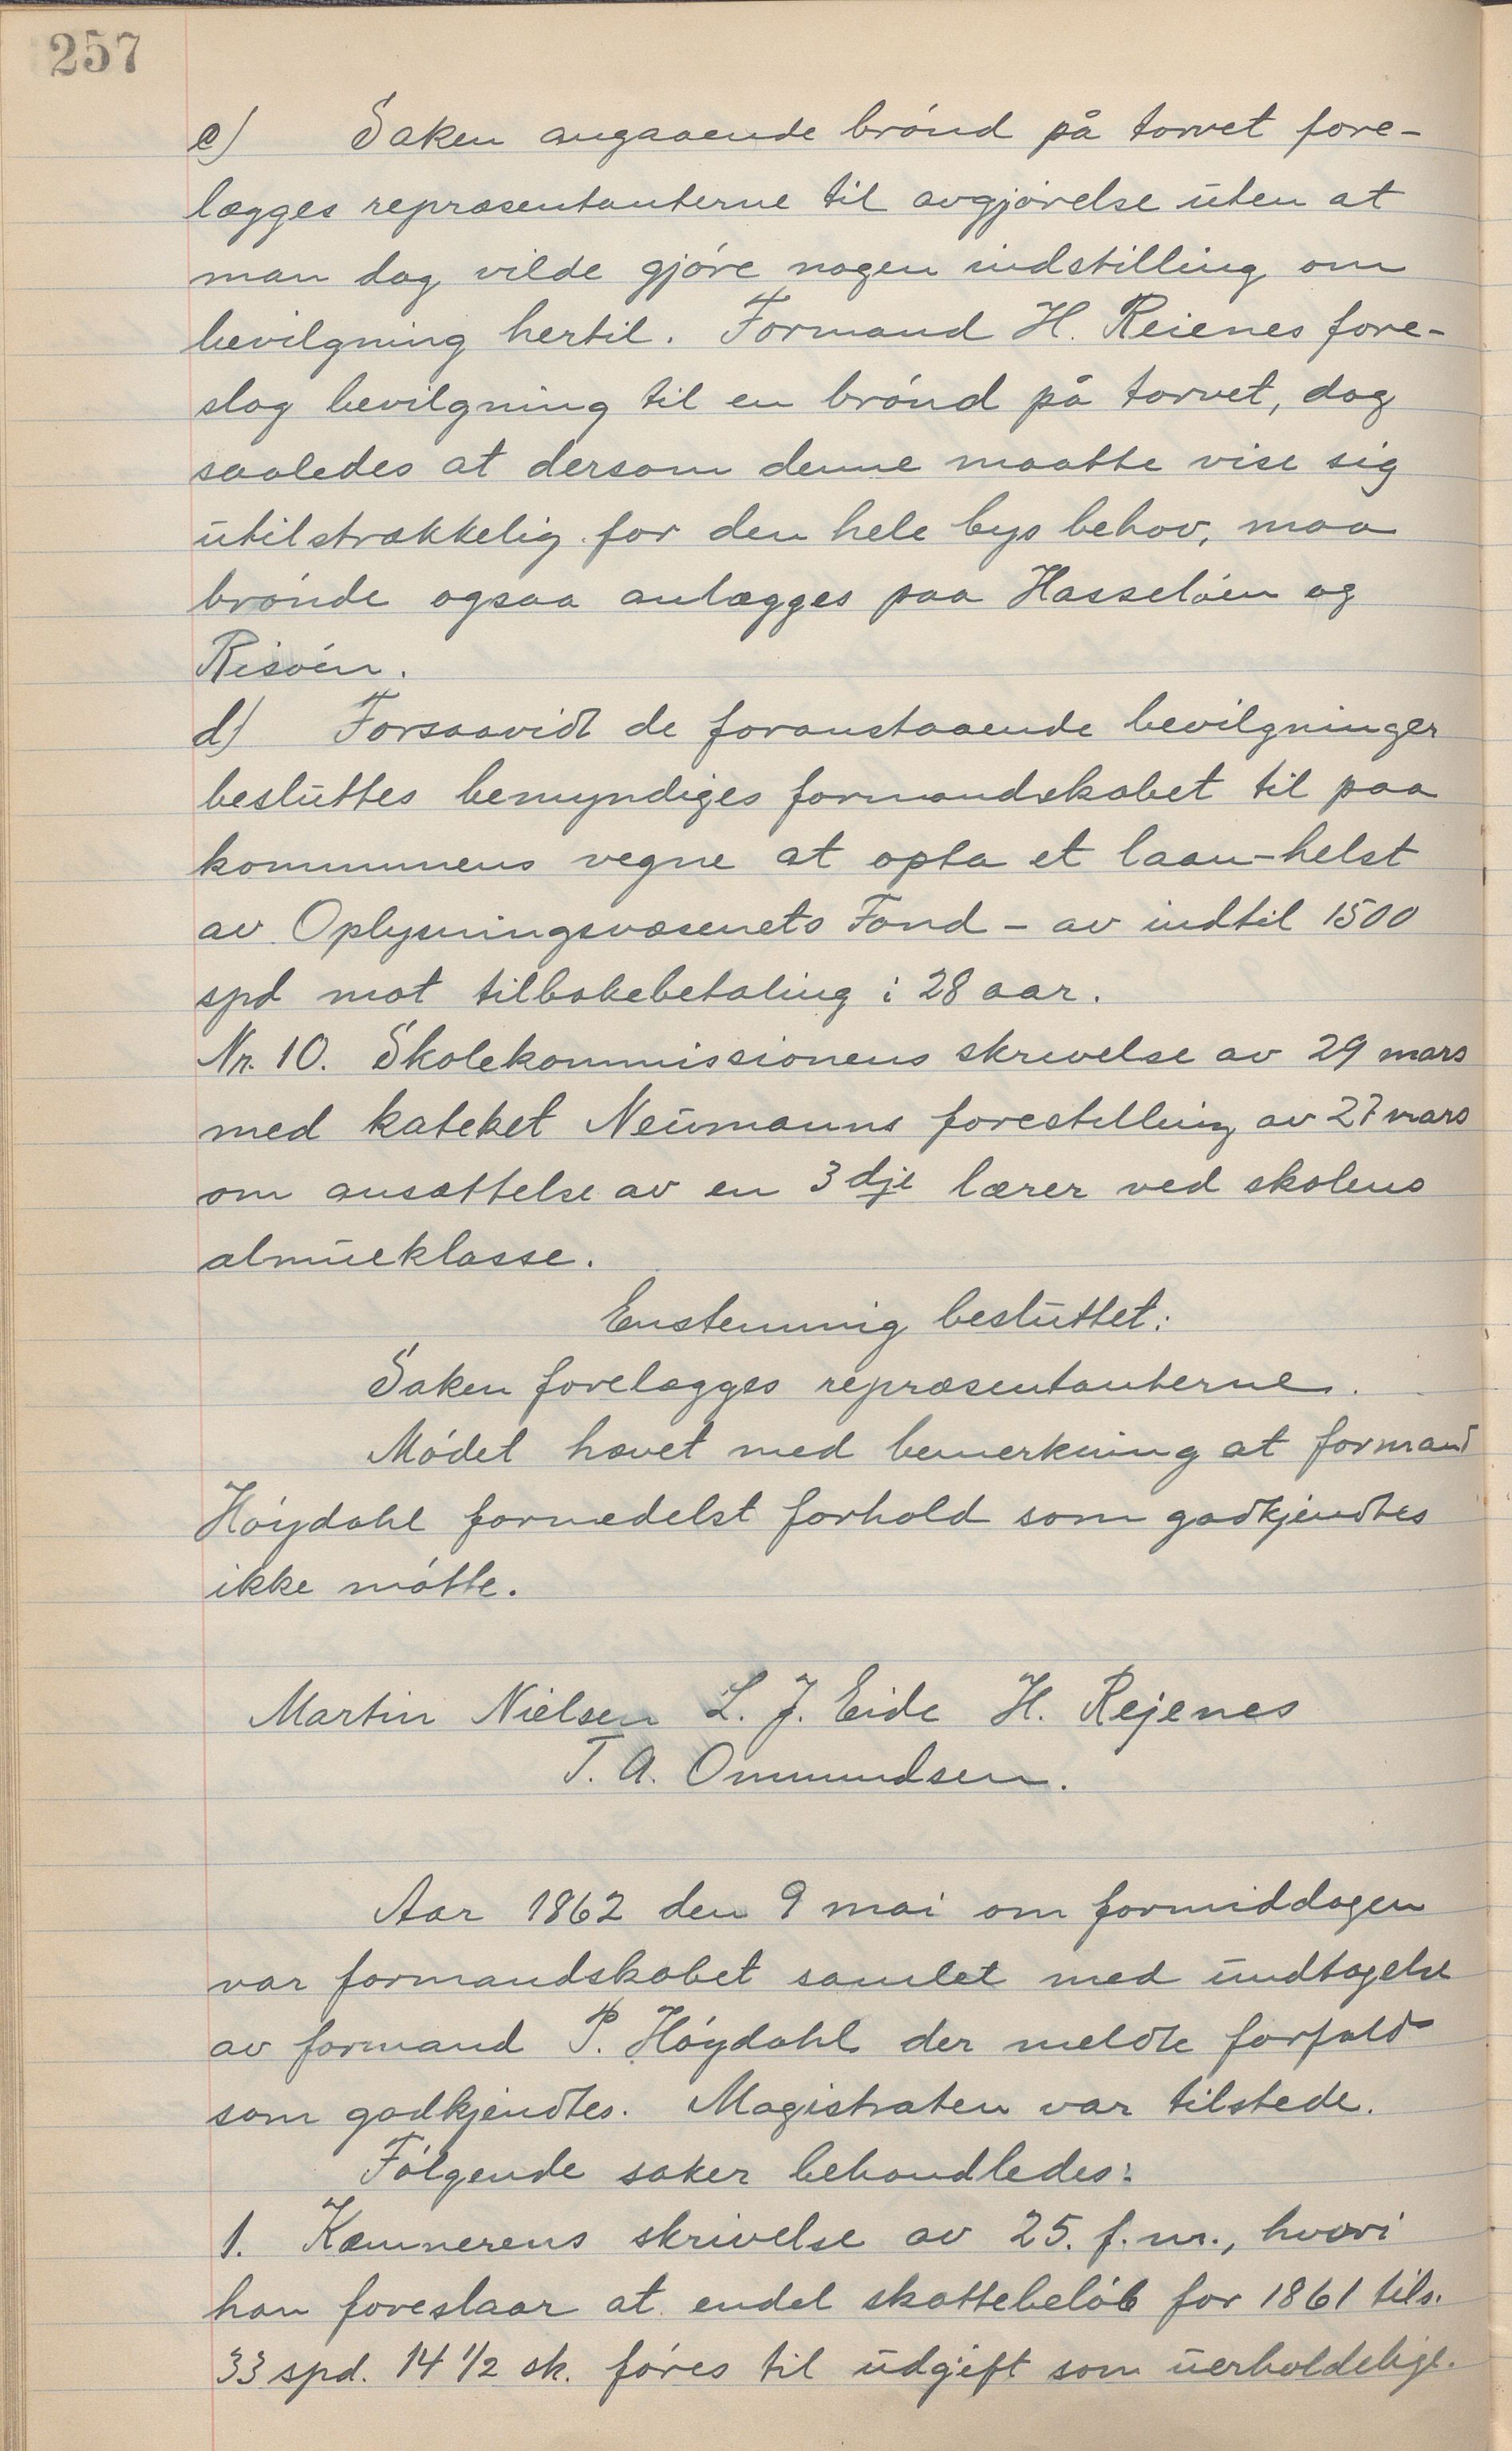 257
c) Saken angaaende brönd på torvet fore-
lægges repræsentanterne til avgjörelse uten at
man dog vilde gjöre nogen indstilling om
bevilgning hertil. Formand H. Reienes fore-
slog bevilgning til en brönd på torvet, dog
saaledes at dersom denne maatte vise sig
utilstrækkelig for den hele bys behov, maa
brönde ogsaa anlægges paa Hasselöen og
Risöen.
d) Forsaavidt de foranstaaende bevilgninger
besluttes bemyndiges formandskabet til paa
kommunens vegne at opta et laan - helst
av Oplysningsvæsenets Fond - av indtil 1500
spd mot tilbakebetaling i 28 aar.
Nr. 10. Skolekommissionens skrivelse av 29 mars
med kateket Neumanns forestilling av 27 mars
om ansættelse av en 3dje lærer ved skolens
almueklasse.
Enstemmig besluttet:
Saken forelægges repræsentanterne.
Mödet hævet med bemerkning at formand
Höydahl formedelst forhold som godkjendtes
ikke mötte.
Martin Nielsen L. J. Eide H. Rejenes
T. A. Ommundsen.
Aar 1862 den 9 mai om formiddagen
var formandskabet samlet med undtagelse
av formand P. Höydahl der meldte forfald
som godkjendtes. Magistraten var tilstede.
Fölgende saker behandledes:
1. Kæmnerens skrivelse av 25. f.m., hvori
han foreslaar at endel skattebelöb for 1861 tils.
33 spd. 14 1/2 sk. föres til udgift som uerholdelige.